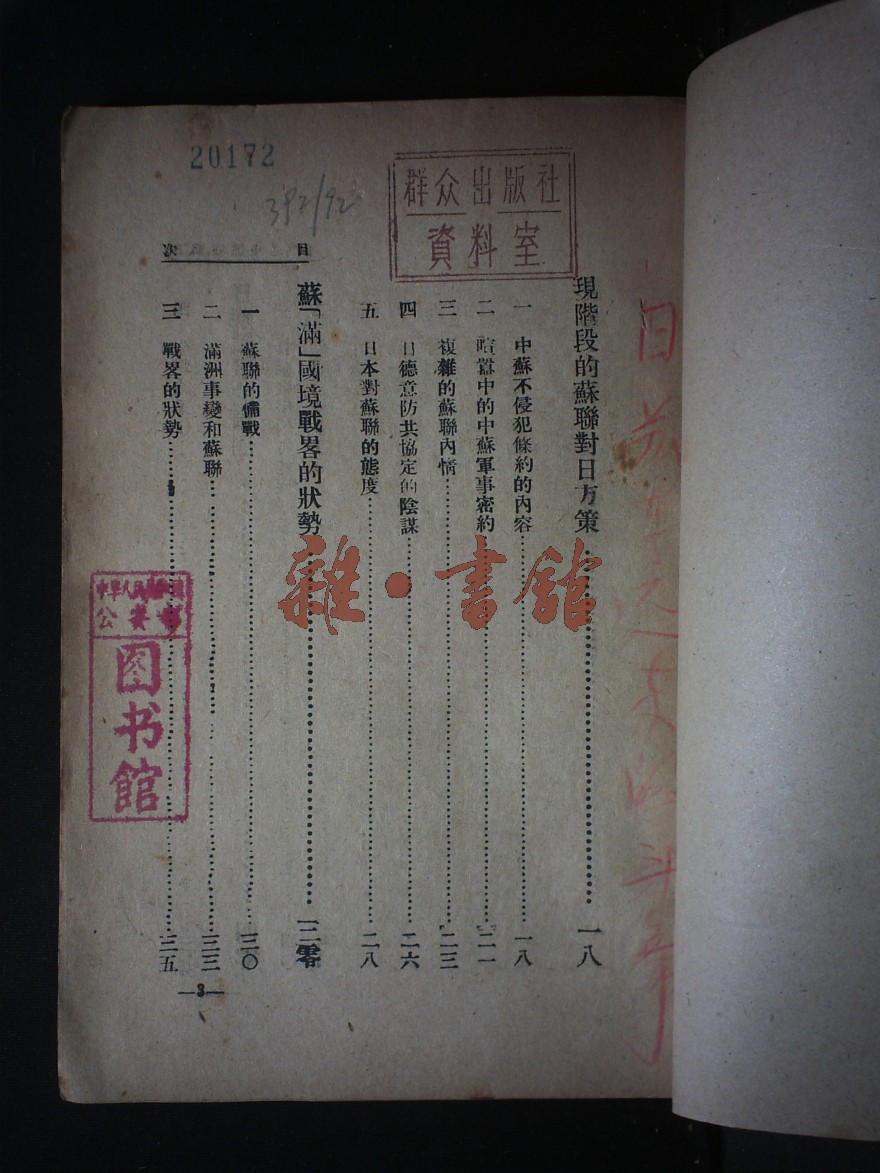 20172
392/92
群众出版社
資料室
目次
現階段的蘇聯對日方策 一八
一 中蘇不侵犯條約的內容 一八
二 喧囂中的中蘇軍事密約 二一
三 複雜的蘇聯內情 二三
四 日德意防共協定的陰謀 二六
五 日本對蘇聯的態度 二八
蘇「滿」國境戰畧的狀勢 三零
一 蘇聯的備戰 三〇
二 滿洲事變和蘇聯 三三
三 戰畧的狀勢 三五
—3—
图书馆
雜·書館